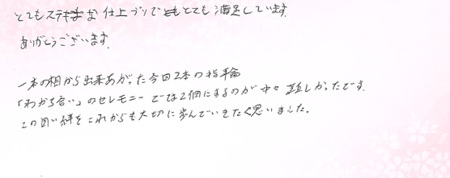 とてもステキな仕上がりでとても満足しています。
ありがとうございます。
一本の相から出来あがった今回2本の指輪
「わかち合い」のセレモニーでは2個にするのが中々難しかったです。
この固い絆をこれからも大切に歩んでいきたく思いました。